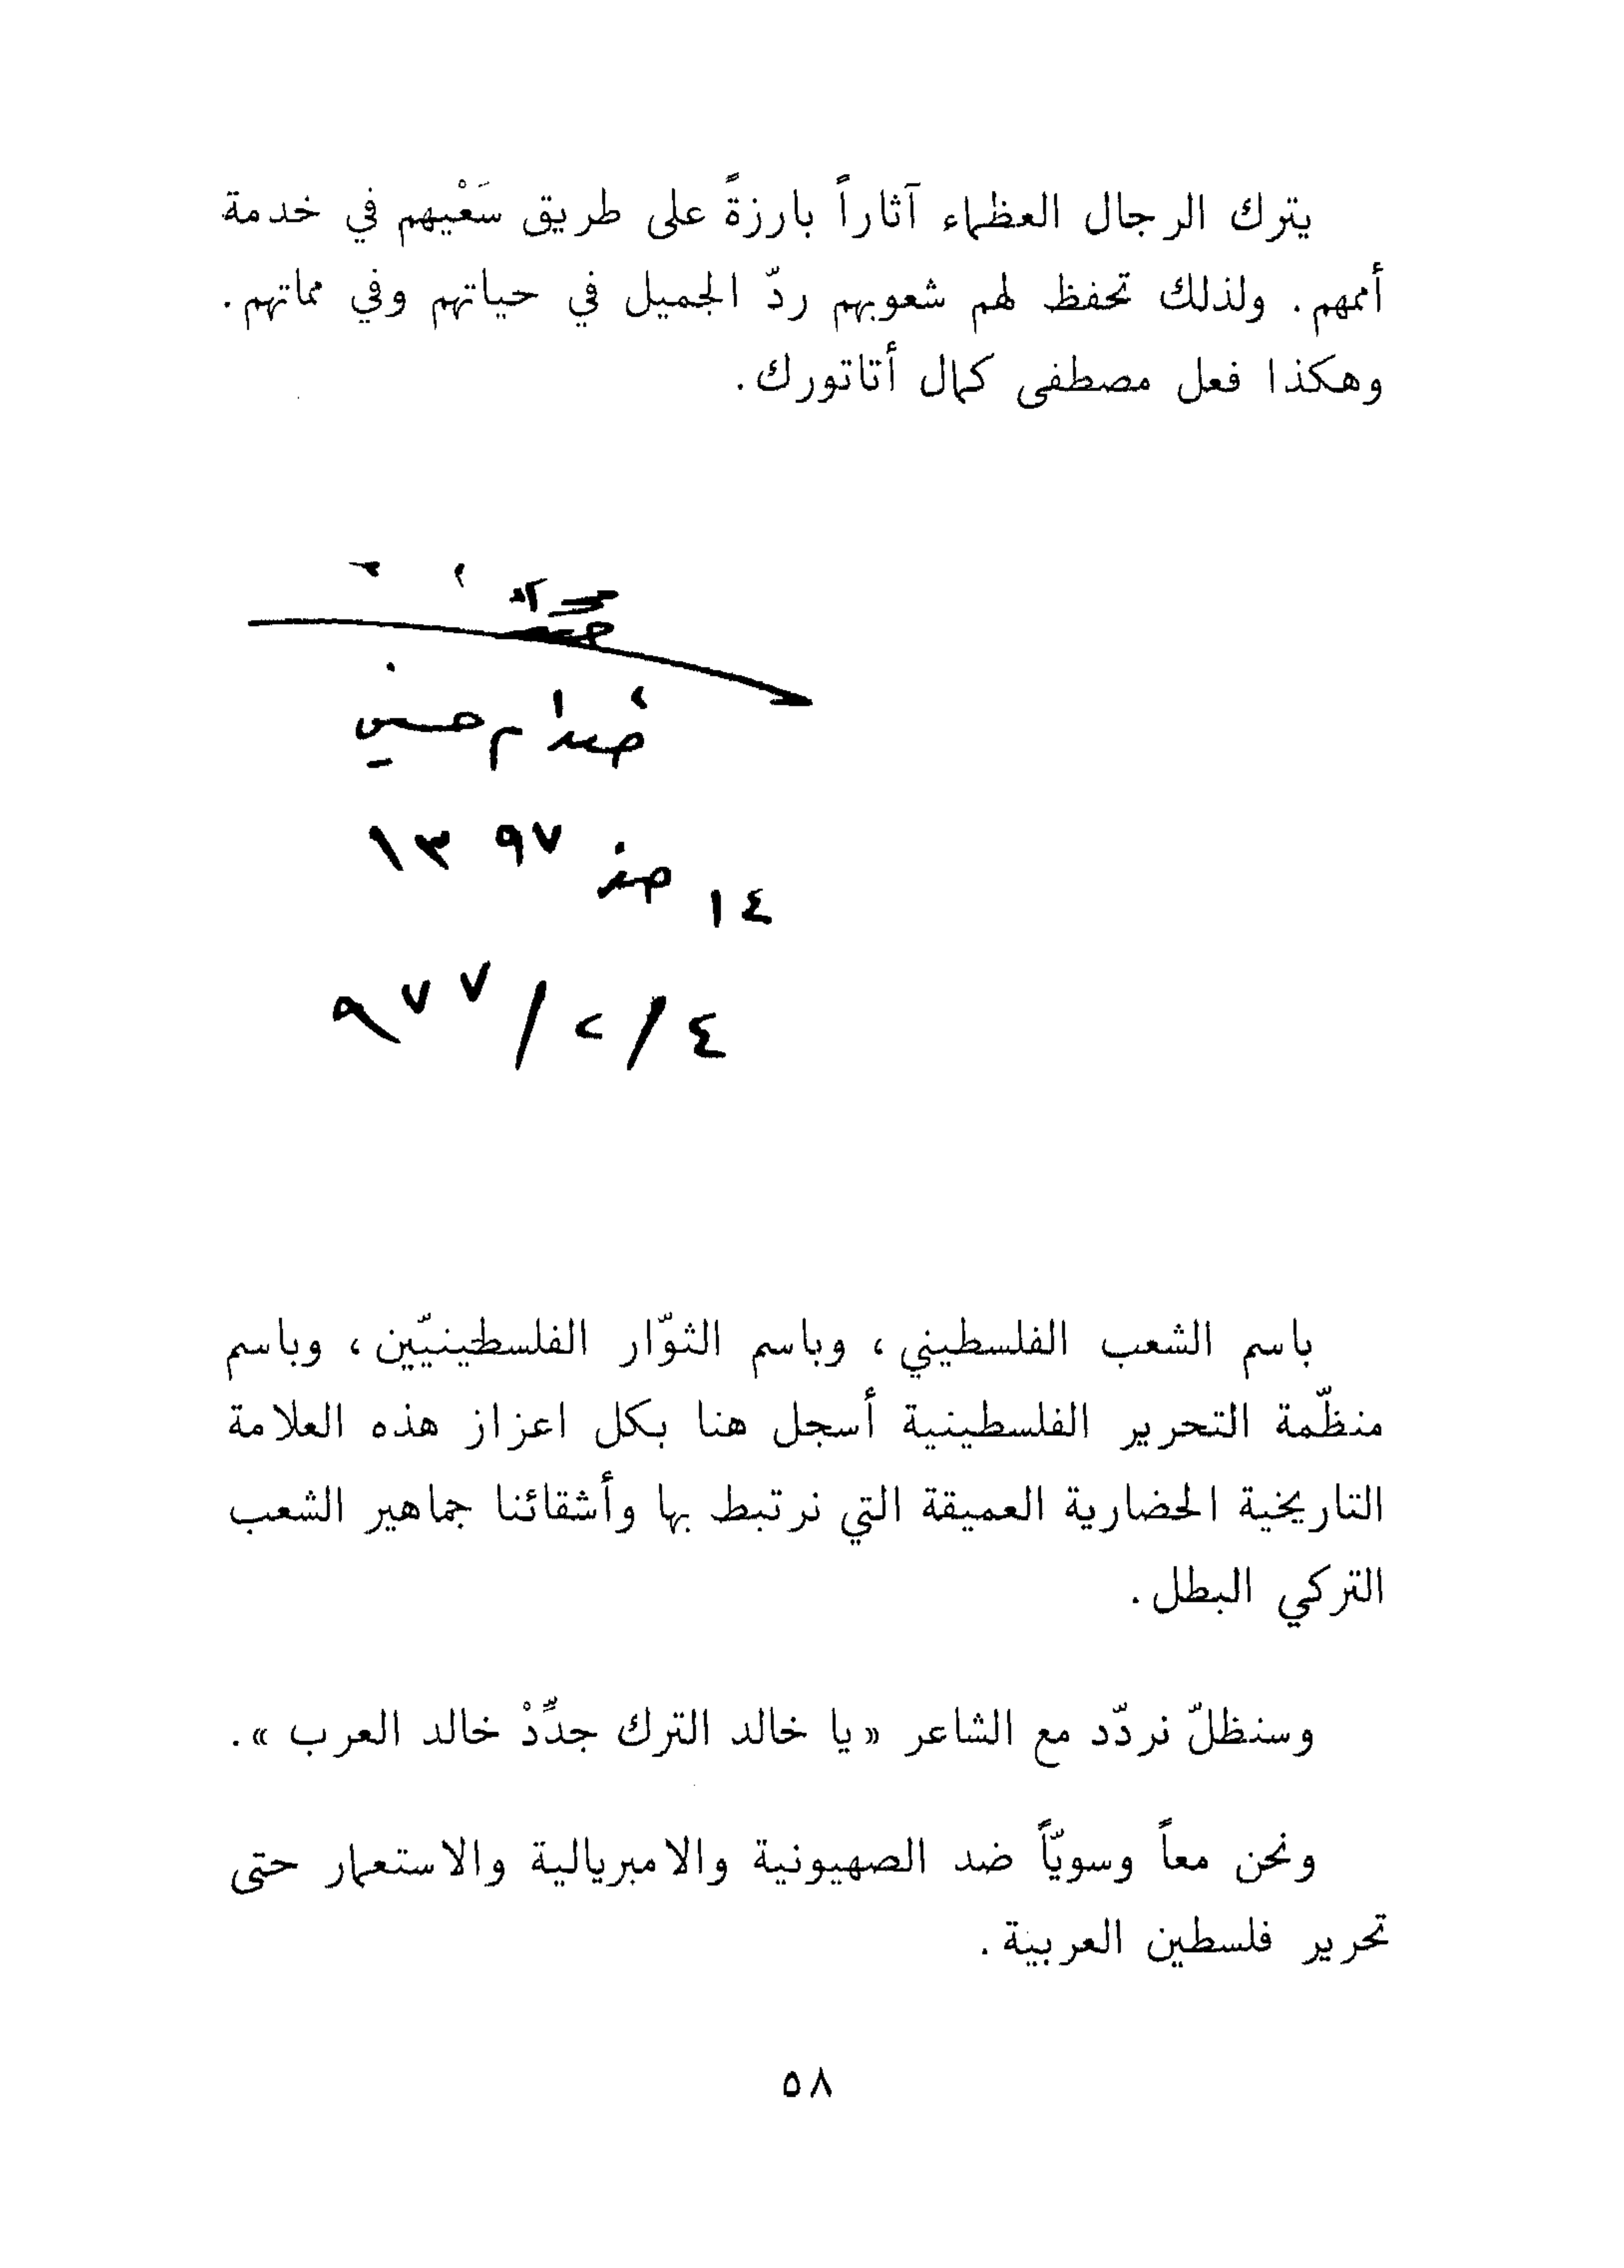 يترك الرجال العظماء آثاراً بارزةً على طريق سَعْيهم في خدمة
أممهم. ولذلك تحفظ لهم شعوبهم ردّ الجميل في حياتهم وفي مماتهم.
وهكذا فعل مصطفى كمال أتاتورك.
صدام حسين
١٤ صفر ١٣٩٧
٤/٢/٩٧٧
باسم الشعب الفلسطيني، وباسم الثوّار الفلسطينيّين، وباسم
منظّمة التحرير الفلسطينية أسجل هنا بكل اعزاز هذه العلامة
التاريخية الحضارية العميقة التي نرتبط بها وأشقائنا جماهير الشعب
التركي البطل.
وسنظلّ نردّد مع الشاعر «يا خالد الترك جدِّدْ خالد العرب».
ونحن معاً وسويّاً ضد الصهيونية والامبريالية والاستعمار حتى
تحرير فلسطين العربية.
٥٨